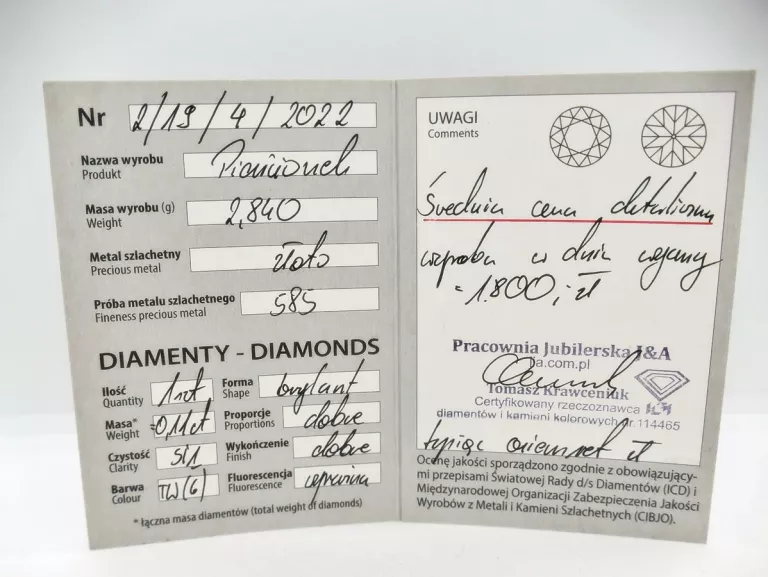 Nr 2/19/4/2022
Nazwa wyrobu Pierścionek
Produkt
Masa wyrobu (g) 2,840
Weight
Metal szlachetny złoto
Precious metal
Próba metalu szlachetnego 585
Fineness precious metal
DIAMENTY - DIAMONDS
Ilość 1szt. Forma brylant
Quantity Shape
Masa* ≈0,11ct Proporcje dobre
Weight Proportions
Czystość SI1 Wykończenie dobre
Clarity Finish
Barwa TW(G) Fluorescencja
Colour Fluorescence
* łączna masa diamentów (total weight of diamonds)
UWAGI
Comments
Średnia cena detaliczna
wyrobu w dniu wyceny
1.800,- zł
Pracownia Jubilerska J&A
ja.com.pl
Tomasz Krawceniuk
Certyfikowany rzeczoznawca
diamentów i kamieni kolorowych nr 114465
tysiąc osiemset zł
Ocenę jakości sporządzono zgodnie z obowiązujący-
mi przepisami Światowej Rady d/s Diamentów (ICD) i
Międzynarodowej Organizacji Zabezpieczenia Jakości
Wyrobów z Metali i Kamieni Szlachetnych (CIBJO).